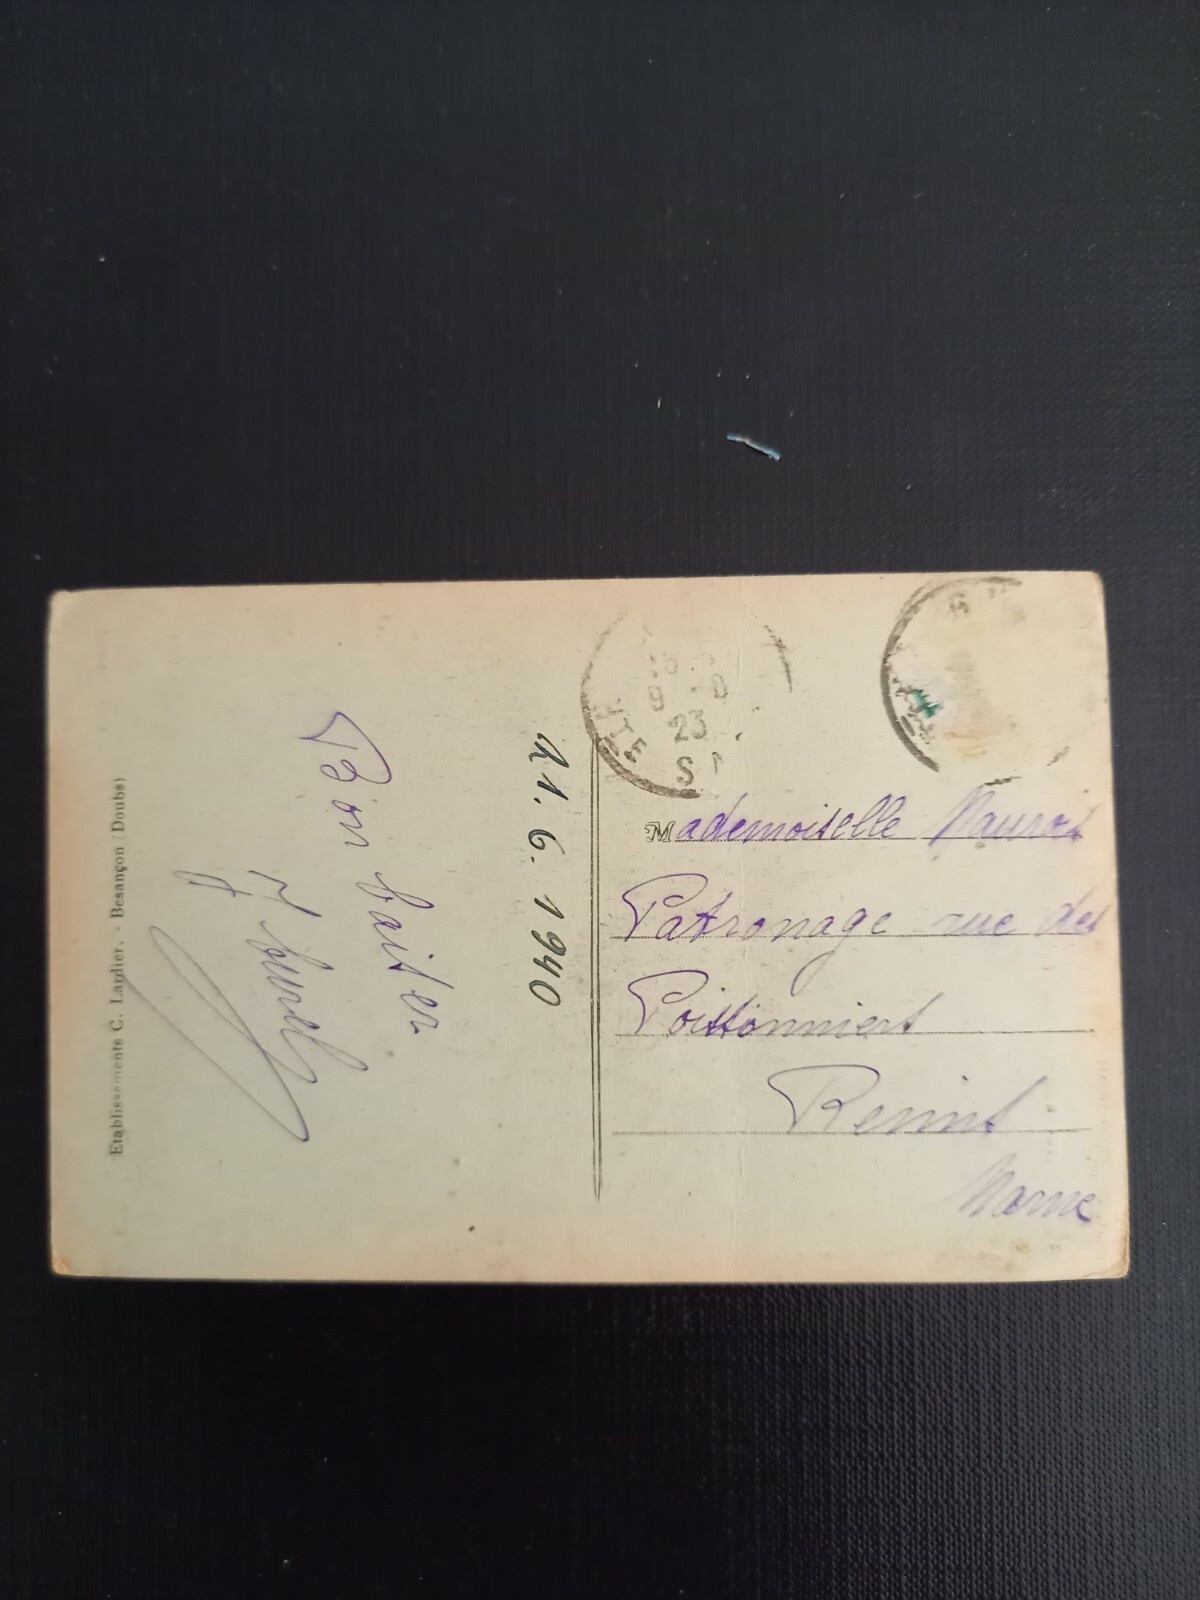 Etablissements C. Lardier. - Besançon (Doubs)
Bon baiser
21. 6. 1940
8
23
S
Mademoiselle
Patronage rue des
Poissonniers
Reims
Marne